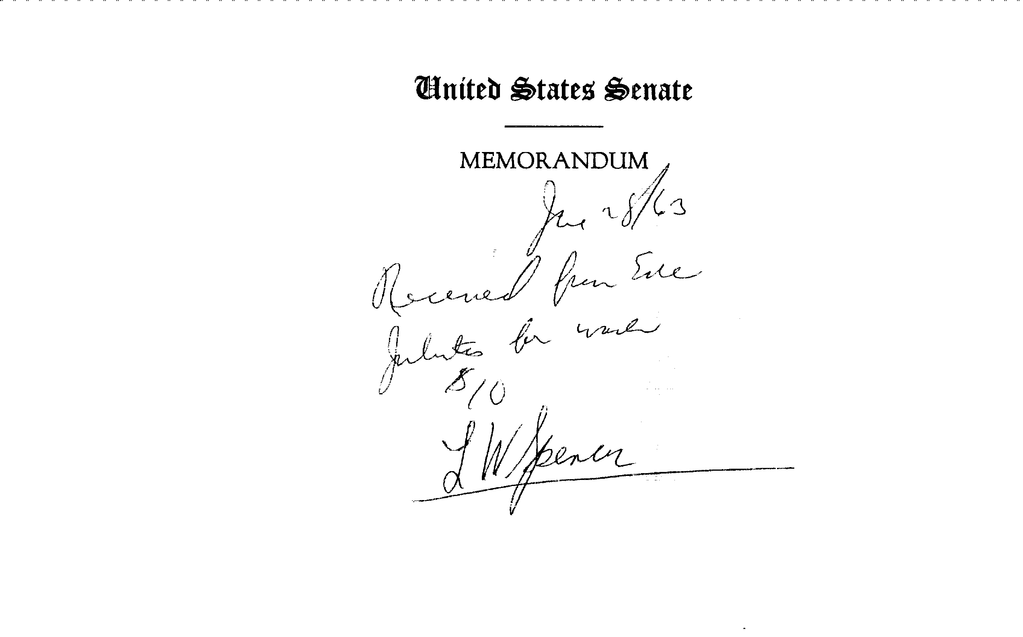 United States Senate
MEMORANDUM
June 28/63
Received from
for
$10
L W Spencer